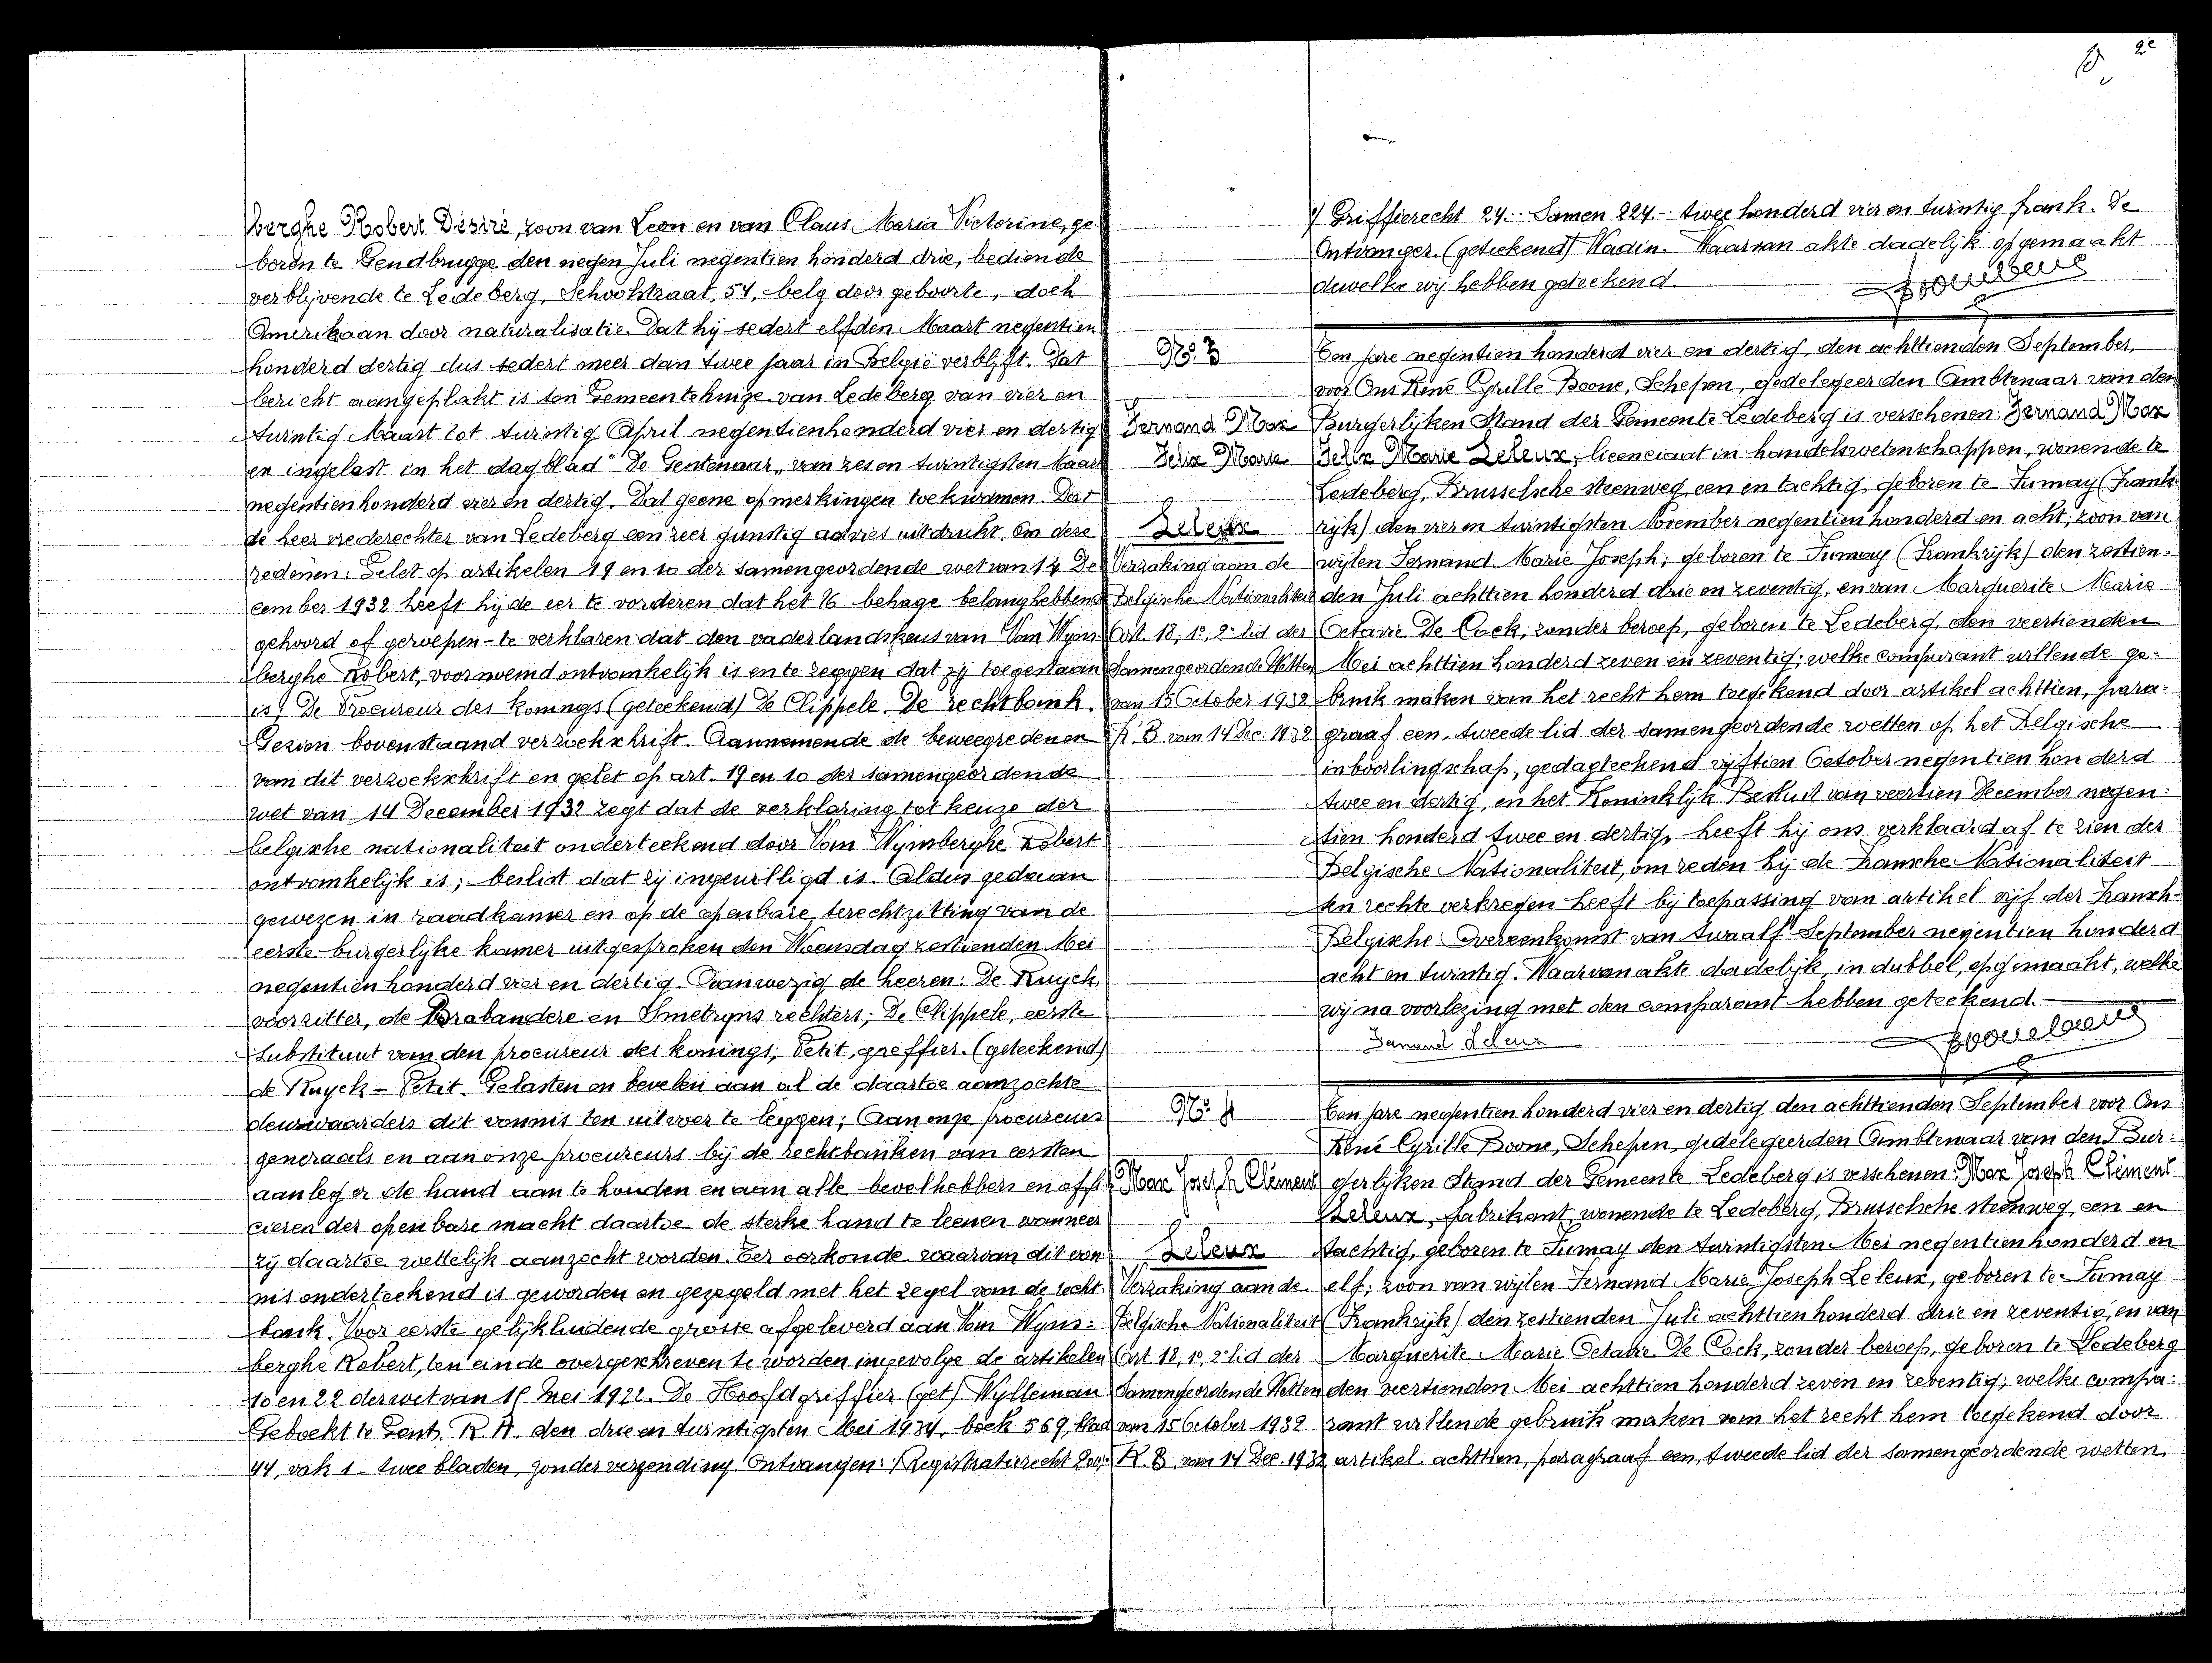 berghe Robert Désiré, zoon van Leon en van Claus Maria Victorine, ge-
boren te Gendbrugge den negen Juli negentien honderd drie, bediende
verblijvende te Ledeberg, Schoolstraat, 54, belg door geboorte, doch
Amerikaan door naturalisatie. Dat hij sedert elfden Maart negentien
honderd dertig dus sedert meer dan twee jaar in België verblijft. Dat
bericht aangeplakt is ten Gemeentehuize van Ledeberg van vier en
twintig Maart tot twintig April negentienhonderd vier en dertig
en ingelast in het dagblad "De Gentenaar" van zes en twintigsten Maart
negentienhonderd vier en dertig. Dat geene opmerkingen toekwamen. Dat
de heer vrederechter van Ledeberg een zeer gunstig advies uitdrukt. Om deze
redenen: Gelet op artikelen 19 en 10 der samengeordende wet van 14 De-
cember 1932 heeft hij de eer te vorderen dat het U behage belanghebbende
gehoord of geroepen - te verklaren dat den vaderlandskeus van Van Wyns-
berghe Robert, voornoemd ontvankelijk is en te zeggen dat zij toegestaan
is; De Procureur des Konings (geteekend) De Clippele. De rechtbank.
Gezien bovenstaand verzoekschrift. Aannemende de beweegredenen
van dit verzoekschrift en gelet op art. 19 en 10 der samengeordende
wet van 14 December 1932 zegt dat de verklaring tot keuze der
belgische nationaliteit onderteekend door Van Wijnsberghe Robert
ontvankelijk is; beslist dat zij ingewilligd is. Aldus gedaan
gewezen in raadkamer en op de openbare terechtzitting van de
eerste burgerlijke kamer uitgesproken den Woensdag zestienden Mei
negentien honderd vier en dertig. Aanwezig de heeren: De Ruyck,
voorzitter, de Brabandere en Smetryns rechters; De Clippele, eerste
Substituut van den procureur des konings; Petit, greffier. (geteekend)
de Ruyck - Petit. Gelasten en bevelen aan al de daartoe aanzochte
deurwaarders dit vonnis ten uitvoer te leggen; Aan onze procureurs
generaals en aan onze procureurs bij de rechtbanken van eersten
aanleg er de hand aan te houden en aan alle bevelhebbers en offi-
cieren der openbare macht daartoe de sterke hand te leenen wanneer
zij daartoe wettelijk aanzocht worden. Ter oorkonde waarvan dit von-
nis onderteekend is geworden en gezegeld met het zegel van de recht-
bank. Voor eerste gelijkluidende grosse afgeleverd aan Van Wyns-
berghe Robert, ten einde overgeschreven te worden ingevolge de artikelen
10 en 22 der wet van 15 Mei 1922. De Hoofdgriffier (get) Wylleman
Geboekt te Gent, R. A. den drie en twintigsten Mei 1934, boek 569, blad
44, vak 1 - twee bladen, zonder verzending. Ontvangen: Registratierecht 200,-
2e
Griffierecht 24.- Samen 224.- twee honderd vier en twintig frank. De
Ontvanger. (geteekend) Wadin. Waarvan akte dadelijk opgemaakt
dewelke wij hebben geteekend.
No. 3
Fernand Max
Felix Marie
Leleux
Verzaking aan de
Belgische Nationaliteit
Art. 18, 1o, 2e lid der
Samengeordende Wetten
van 15 October 1932
K. B. van 14 Dec. 1932
Ten jare negentien honderd vier en dertig, den achttienden September,
voor Ons René Cyrille Boone, Schepen, gedelegeerden Ambtenaar van den
Burgerlijken Stand der Gemeente Ledeberg is verschenen: Fernand Max
Felix Marie Leleux, licenciaat in handelswetenschappen, wonende te
Ledeberg, Brusselsche steenweg, een en tachtig, geboren te Fumay (Frank-
rijk) den vier en twintigsten November negentien honderd en acht; zoon van
wijlen Fernand Marie Joseph; geboren te Fumay (Frankrijk) den zestien-
den Juli achttien honderd drie en zeventig, en van Marguerite Marie
Octavie De Cock, zonder beroep, geboren te Ledeberg, den veertienden
Mei achttien honderd zeven en zeventig; welke comparant willende ge-
bruik maken van het recht hem toegekend door artikel achttien, para-
graaf een, tweede lid der samengeordende wetten op het Belgische
inboorlingschap, gedagteekend vijftien October negentien honderd
twee en dertig, en het Koninklijk Besluit van veertien December negen-
tien honderd twee en dertig, heeft hij ons verklaard af te zien der
Belgische Nationaliteit, om reden hij de Fransche Nationaliteit
ten rechte verkregen heeft bij toepassing van artikel vijf der Fransch-
Belgische Overeenkomst van twaalf September negentien honderd
acht en twintig. Waarvan akte dadelijk, in dubbel, opgemaakt, welke
wij na voorlezing met den comparant hebben geteekend.
Fernand Leleux
No. 4
Max Joseph Clément
Leleux
Verzaking aan de
Belgische Nationaliteit
Art 18, 1o, 2e lid der
Samengeordende Wetten
van 15 October 1932
K. B. van 14 Dec. 1932
Ten jare negentien honderd vier en dertig den achttienden September voor Ons
René Cyrille Boone, Schepen, gedelegeerden Ambtenaar van den Bur-
gerlijken Stand der Gemeente Ledeberg is verschenen: Max Joseph Clément
Leleux, fabrikant, wonende te Ledeberg, Brusselsche steenweg, een en
tachtig, geboren te Fumay den twintigsten Mei negentienhonderd en
elf; zoon van wijlen Fernand Marie Joseph Leleux, geboren te Fumay
(Frankrijk) den zestienden Juli achttien honderd drie en zeventig, en van
Marguerite Marie Octavie De Cock, zonder beroep, geboren te Ledeberg
den veertienden Mei achttien honderd zeven en zeventig; welke compa-
rant willende gebruik maken van het recht hem toegekend door
artikel achttien, paragraaf een, tweede lid der samengeordende wetten